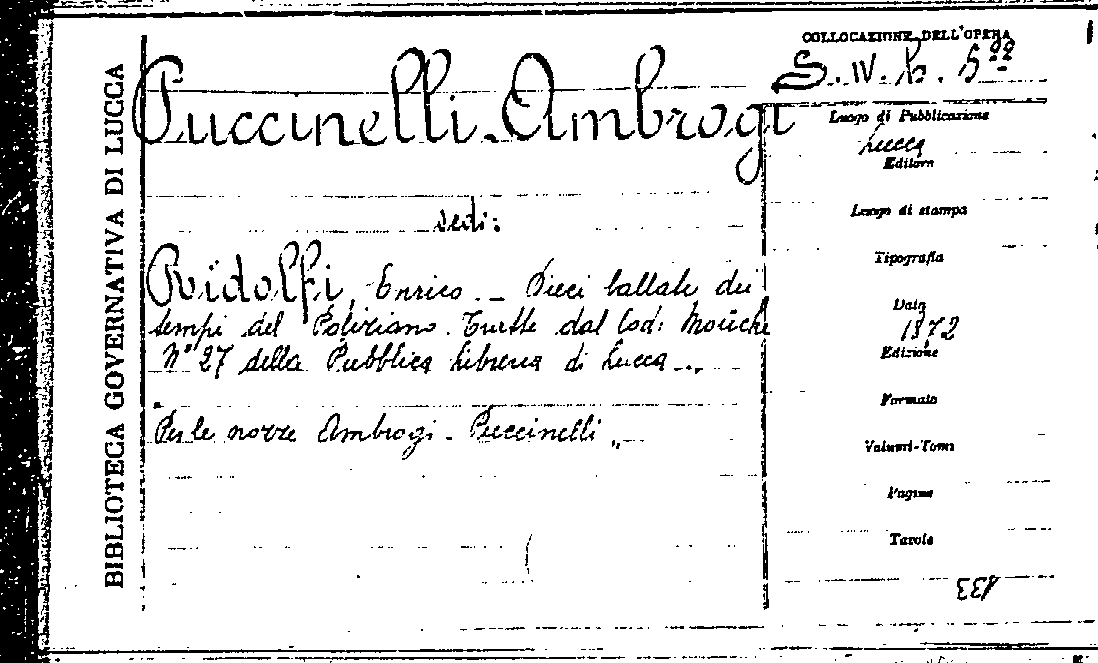 BIBLIOTECA GOVERNATIVA DI LUCCA
Puccinelli-Ambrogi
vedi:
Ridolfi, Enrico - Dieci ballate dei
tempi del Poliziano. Tratte dal Cod: Moücke
N° 27 della Pubblica Libreria di Lucca...
"Per le nozze Ambrogi - Puccinelli"
COLLOCAZIONE DELL'OPERA
S. IV. b. 5
Luogo di Pubblicazione
Lucca
Editore
Luogo di stampa
Tipografia
Data
1872
Edizione
Formato
Volumi-Tomi
Pagine
Tavole